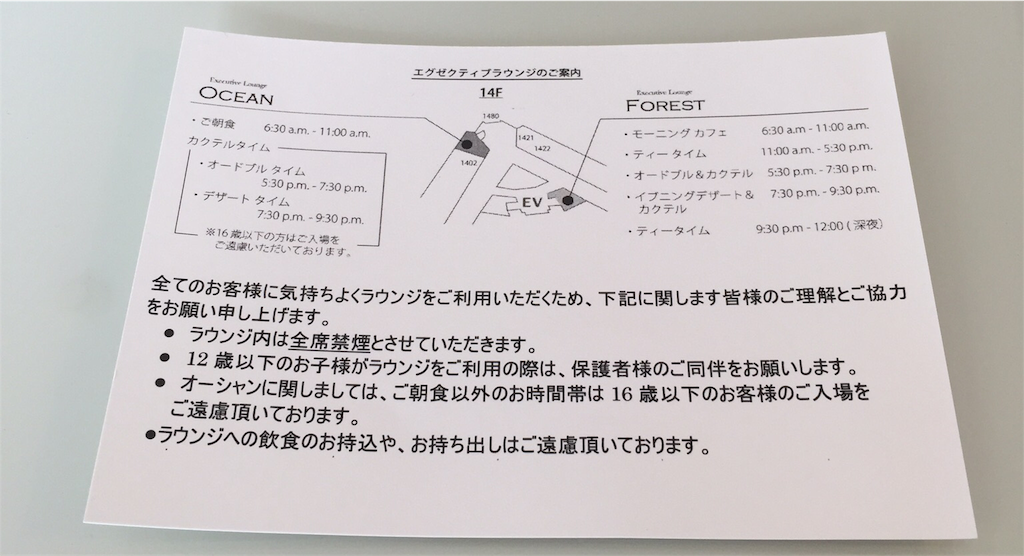 エグゼクティブラウンジのご案内
14F
Executive Lounge
OCEAN
・ご朝食 6:30 a.m. - 11:00 a.m.
カクテルタイム
・オードブル タイム
5:30 p.m. - 7:30 p.m.
・デザート タイム
7:30 p.m. - 9:30 p.m.
※16歳以下の方はご入場を
ご遠慮いただいております。
1480
1421
1422
1402
EV
Executive Lounge
FOREST
・モーニング カフェ 6:30 a.m - 11:00 a.m.
・ティー タイム 11:00 a.m. - 5:30 p.m.
・オードブル&カクテル 5:30 p.m. - 7:30 p m.
・イブニングデザート& 7:30 p.m. - 9:30 p.m.
カクテル
・ティータイム 9:30 p.m - 12:00 ( 深夜)
全てのお客様に気持ちよくラウンジをご利用いただくため、下記に関します皆様のご理解とご協力
をお願い申し上げます。
● ラウンジ内は全席禁煙とさせていただきます。
● 12歳以下のお子様がラウンジをご利用の際は、保護者様のご同伴をお願いします。
● オーシャンに関しましては、ご朝食以外のお時間帯は16歳以下のお客様のご入場を
ご遠慮頂いております。
●ラウンジへの飲食のお持込や、お持ち出しはご遠慮頂いております。